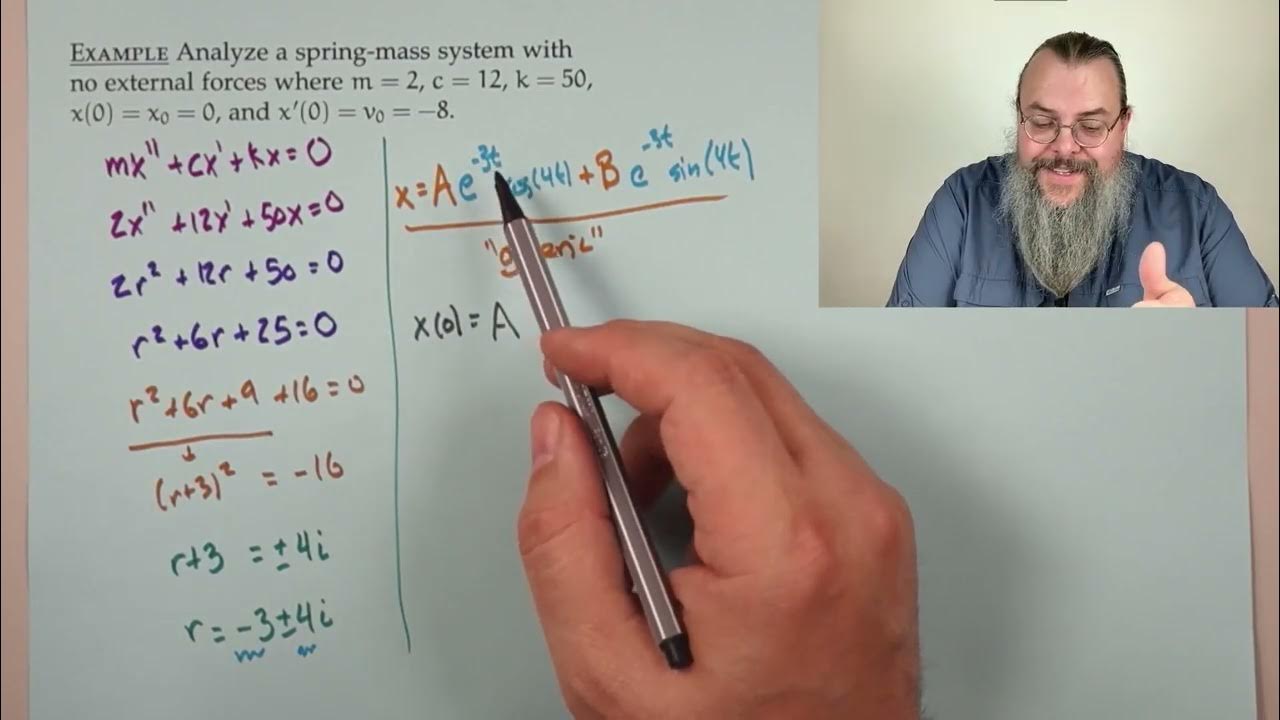 EXAMPLE Analyze a spring-mass system with
no external forces where m = 2, c = 12, k = 50,
x(0) = x₀ = 0, and x′(0) = v₀ = −8.
mx″ + cx′ + kx = 0
2x″ + 12x′ + 50x = 0
2r² + 12r + 50 = 0
r² + 6r + 25 = 0
r² + 6r + 9 + 16 = 0
(r+3)² = -16
r+3 = ±4i
r = -3±4i
x = A e^-3t cos(4t) + B e^-3t sin(4t)
x(0) = A